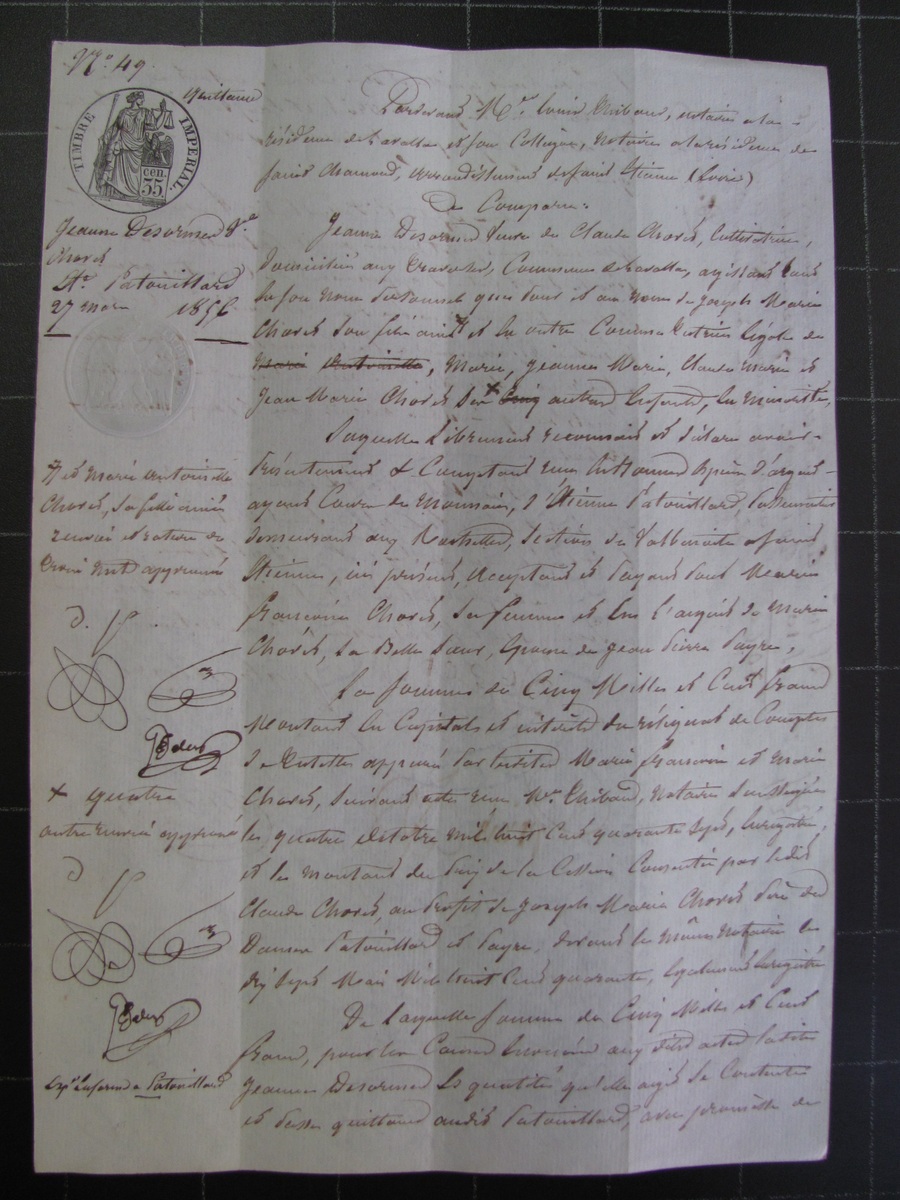 N° 49
quittance
TIMBRE IMPERIAL
35 cen.
Jeanne Desormed Vve
Chorel
Et Patouillard
27 mars 1856
Pardevant Me Louis Thibaud, notaire à la
résidence de Lavalla et son Collègue, notaire à la résidence de
saint Chamond, arrondissement de saint Etienne (Loire)
A Comparu:
Jeanne Desormed Veuve de Claude Chorel, Cultivatrice,
domiciliée aux, Commune de Lavalla, agissant tant
en son nom personnel que pour et au nom de Joseph Marie
Chorel son fils ainé et en outre Comme tutrice légale de
Marie Antoinette, Marie, Jeanne Marie, Claude Marie et
Jean Marie Chorel ses cinq autres Enfants, en minorité,
Laquelle librement reconnait et déclare avoir
présentement & Comptant reçu en bonnes espèces d'argent
ayant Cours de monnaie, d'Etienne Patouillard, passementier
demeurant aux, section de Valbenoite à saint
Etienne, ici présent, acceptant et payant pour Marie
Françoise Chorel, sa femme et en l'acquit de Marie
Chorel, sa Belle sœur, épouse de Jean Pierre Payre,
La somme de Cinq Milles et Cent francs
Montant en Capital et intérêts du réliquat de Comptes
de tutelle appuré par lesdites Marie Françoise et Marie
Chorel, suivant acte reçu Me Thibaud, Notaire soussigné
le quatre octobre mil huit cent quarante sept, Enregistré,
et le montant du prix de la Cession Consentie par ledit
Claude Chorel, au profit de Joseph Marie Chorel père des
Dames Patouillard et Payre, devant le même notaire le
dix sept Mai Mil huit Cent quarante, également Enregistré
De laquelle somme de Cinq Milles et Cent
francs, pour les Causes énoncées aux dits actes ladite
Jeanne Desormed Es qualités qu'elle agit se Contente
et passe quittance audit Patouillard, avec promesse de
Et Marie Antoinette
Chorel, sa fille ainée
renvoi et rature de
trois mots approuvé
D. P
× quatre
autre renvoi approuvé
D P
Expn Enforme à Patouillard